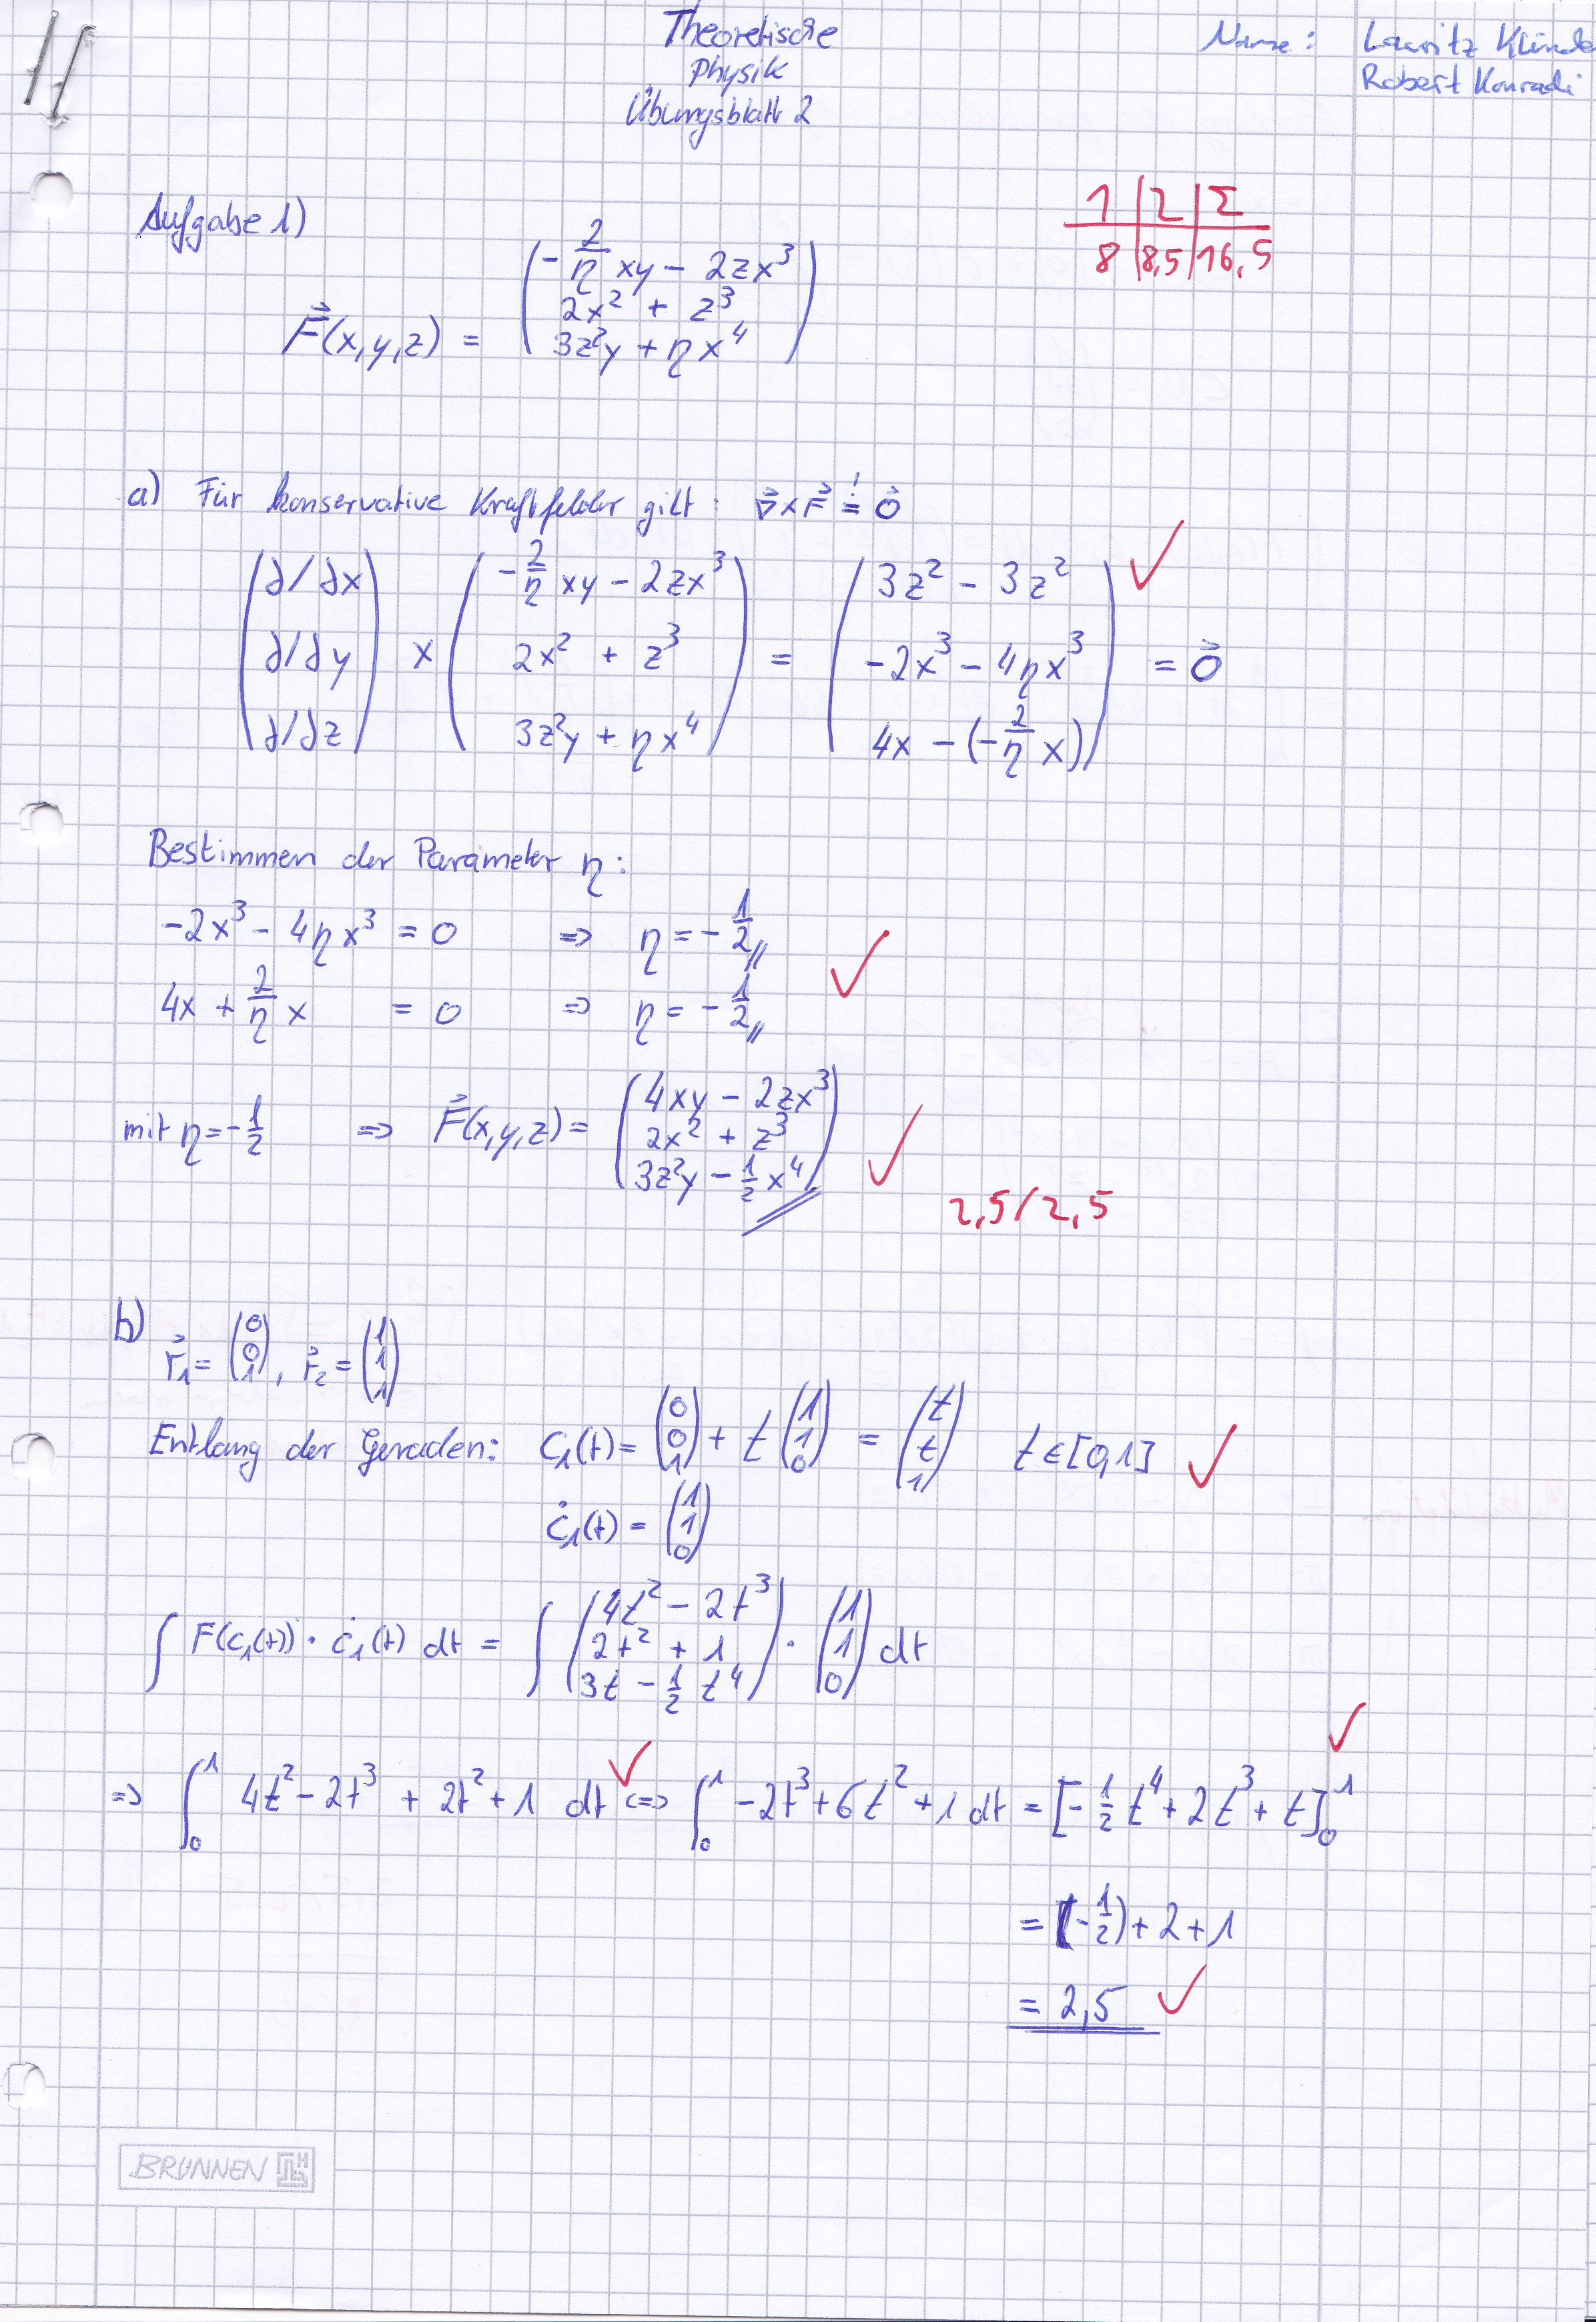 Theoretische
Physik
Übungsblatt 2
Name: Lauritz
Robert Konradi
1 | 2 | Σ
8 | 8,5 | 16,5
Aufgabe 1)
F⃗(x,y,z) = ( -2/η xy - 2zx³ ; 2x² + z³ ; 3z²y + ηx⁴ )
a) Für konservative Kraftfelder gilt: ∇⃗ x F⃗ =! 0⃗
( ∂/∂x ; ∂/∂y ; ∂/∂z ) x ( -2/η xy - 2zx³ ; 2x² + z³ ; 3z²y + ηx⁴ ) = ( 3z² - 3z² ; -2x³ - 4ηx³ ; 4x - (-2/η x) ) = 0⃗ ✓
Bestimmen der Parameter η:
-2x³ - 4ηx³ = 0 => η = -1/2
4x + 2/η x = 0 => η = -1/2 ✓
mit η = -1/2 => F⃗(x,y,z) = ( 4xy - 2zx³ ; 2x² + z³ ; 3z²y - 1/2 x⁴ ) ✓
2,5/2,5
b)
r⃗₁ = ( 0 ; 0 ; 1 ), r⃗₂ = ( 1 ; 1 ; 1 )
Entlang der Geraden: C₁(t) = ( 0 ; 0 ; 1 ) + t ( 1 ; 1 ; 0 ) = ( t ; t ; 1 ) t ∈ [0,1] ✓
ċ₁(t) = ( 1 ; 1 ; 0 )
∫ F(c₁(t)) · ċ₁(t) dt = ∫ ( 4t² - 2t³ ; 2t² + 1 ; 3t - 1/2 t⁴ ) · ( 1 ; 1 ; 0 ) dt
=> ∫₀¹ 4t² - 2t³ + 2t² + 1 dt ✓ <=> ∫₀¹ -2t³ + 6t² + 1 dt = [-1/2 t⁴ + 2t³ + t]₀¹ ✓
= (-1/2) + 2 + 1
= 2,5 ✓
BRUNNEN